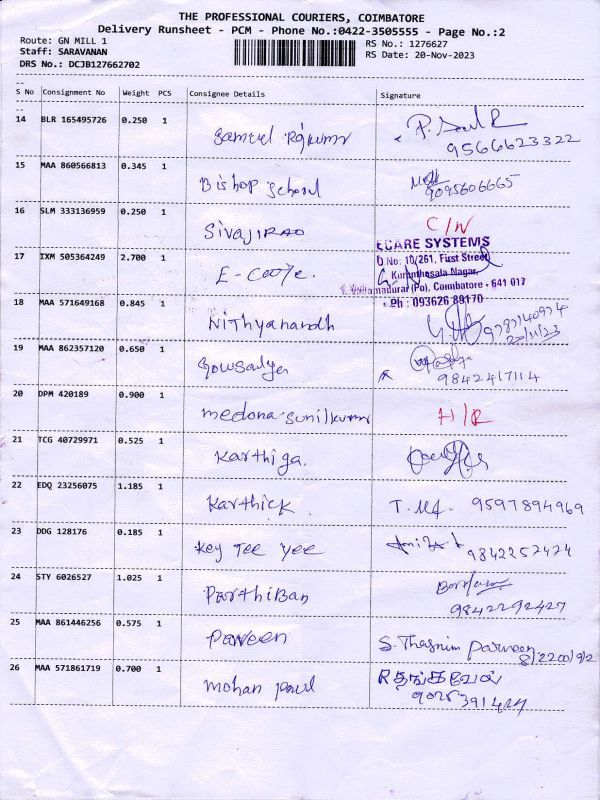 THE PROFESSIONAL COURIERS, COIMBATORE
Delivery Runsheet - PCM - Phone No.:0422-3505555 - Page No.:2
Route: GN MILL 1 RS No.: 1276627
Staff: SARAVANAN RS Date: 20-Nov-2023
DRS No.: DCJB127662702
S No Consignment No Weight PCS Consignee Details Signature
14 BLR 165495726 0.250 1 Samuel Rajkumar 9566623322
15 MAA 860566813 0.345 1 Bishop School 9095606665
16 SLM 333136959 0.250 1 SIVAJIRAO C/N
ECARE SYSTEMS
D No: 10/261, First Street
17 IXM 505364249 2.700 1 E-Care.
Kurunthosala Nagar,
(Po), Coimbatore - 641 017
Ph : 093626 89170
18 MAA 571649168 0.845 1 Nithyanandh 9787140974
20/11/23
19 MAA 862357120 0.650 1 Gowsalya 9842417114
20 DPM 420189 0.900 1 medona sunilkumar H/R
21 TCG 40729971 0.525 1 Karthiga.
22 EDQ 23256075 1.185 1 Karthick 9597894969
23 DDG 128176 0.185 1 Key Tee yee 9842252424
24 STY 6026527 1.025 1 ParthiBan
9842292427
25 MAA 861446256 0.575 1 Paween S. Thasnim Parveen
26 MAA 571861719 0.700 1 mohan paul R தங்கவேல்